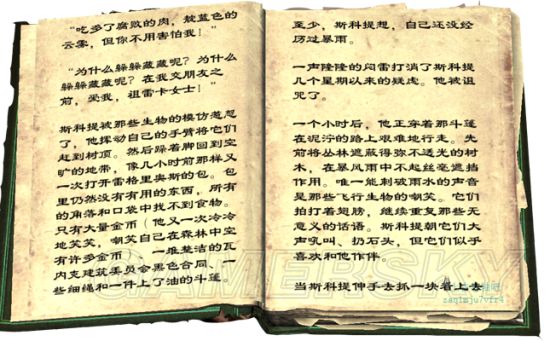 “吃多了腐败的肉，靛蓝色的
云案，但你不用害怕我！”
“为什么躲躲藏藏呢？为什么
躲躲藏藏呢？在我交朋友之
前，爱我，祖雷卡女士！”
斯科提被那些生物的模仿惹怒
了，他挥动自己的手臂将它们
赶到树顶。然后踩着脚回到空
旷的地带，像几小时前那样又
一次打开雷格里奥斯的包。包
里仍然没有有用的东西，所有
的角落和口袋中找不到食物。
只有大量金币（他又一次冷冷
地笑笑，嘲笑自己在森林中空
有许多金币
一堆整洁的瓦
内克建筑委员会黑色合同、一
些细绳和一件上了油的斗篷。
至少，斯科提想，自己还没经
历过暴雨。
一声隆隆的闷雷打消了斯科提
几个星期以来的疑虑。他被诅
咒了。
一个小时后，他正穿着那斗篷
在泥泞的路上艰难地行走。先
前将丛林遮蔽得弥不透光的树
木，在暴风雨中不起丝毫遮挡
作用。唯一能刺破雨水的声音
是那些飞行生物的嘲笑。它们
拍打着翅膀，继续重复那些无
意义的话语。斯科提朝它们大
声吼叫、扔石头，但它们似乎
喜欢和他作伴。
当斯科提伸手去抓一块看上去
GAMERSKY
zaq1mju7vfr4